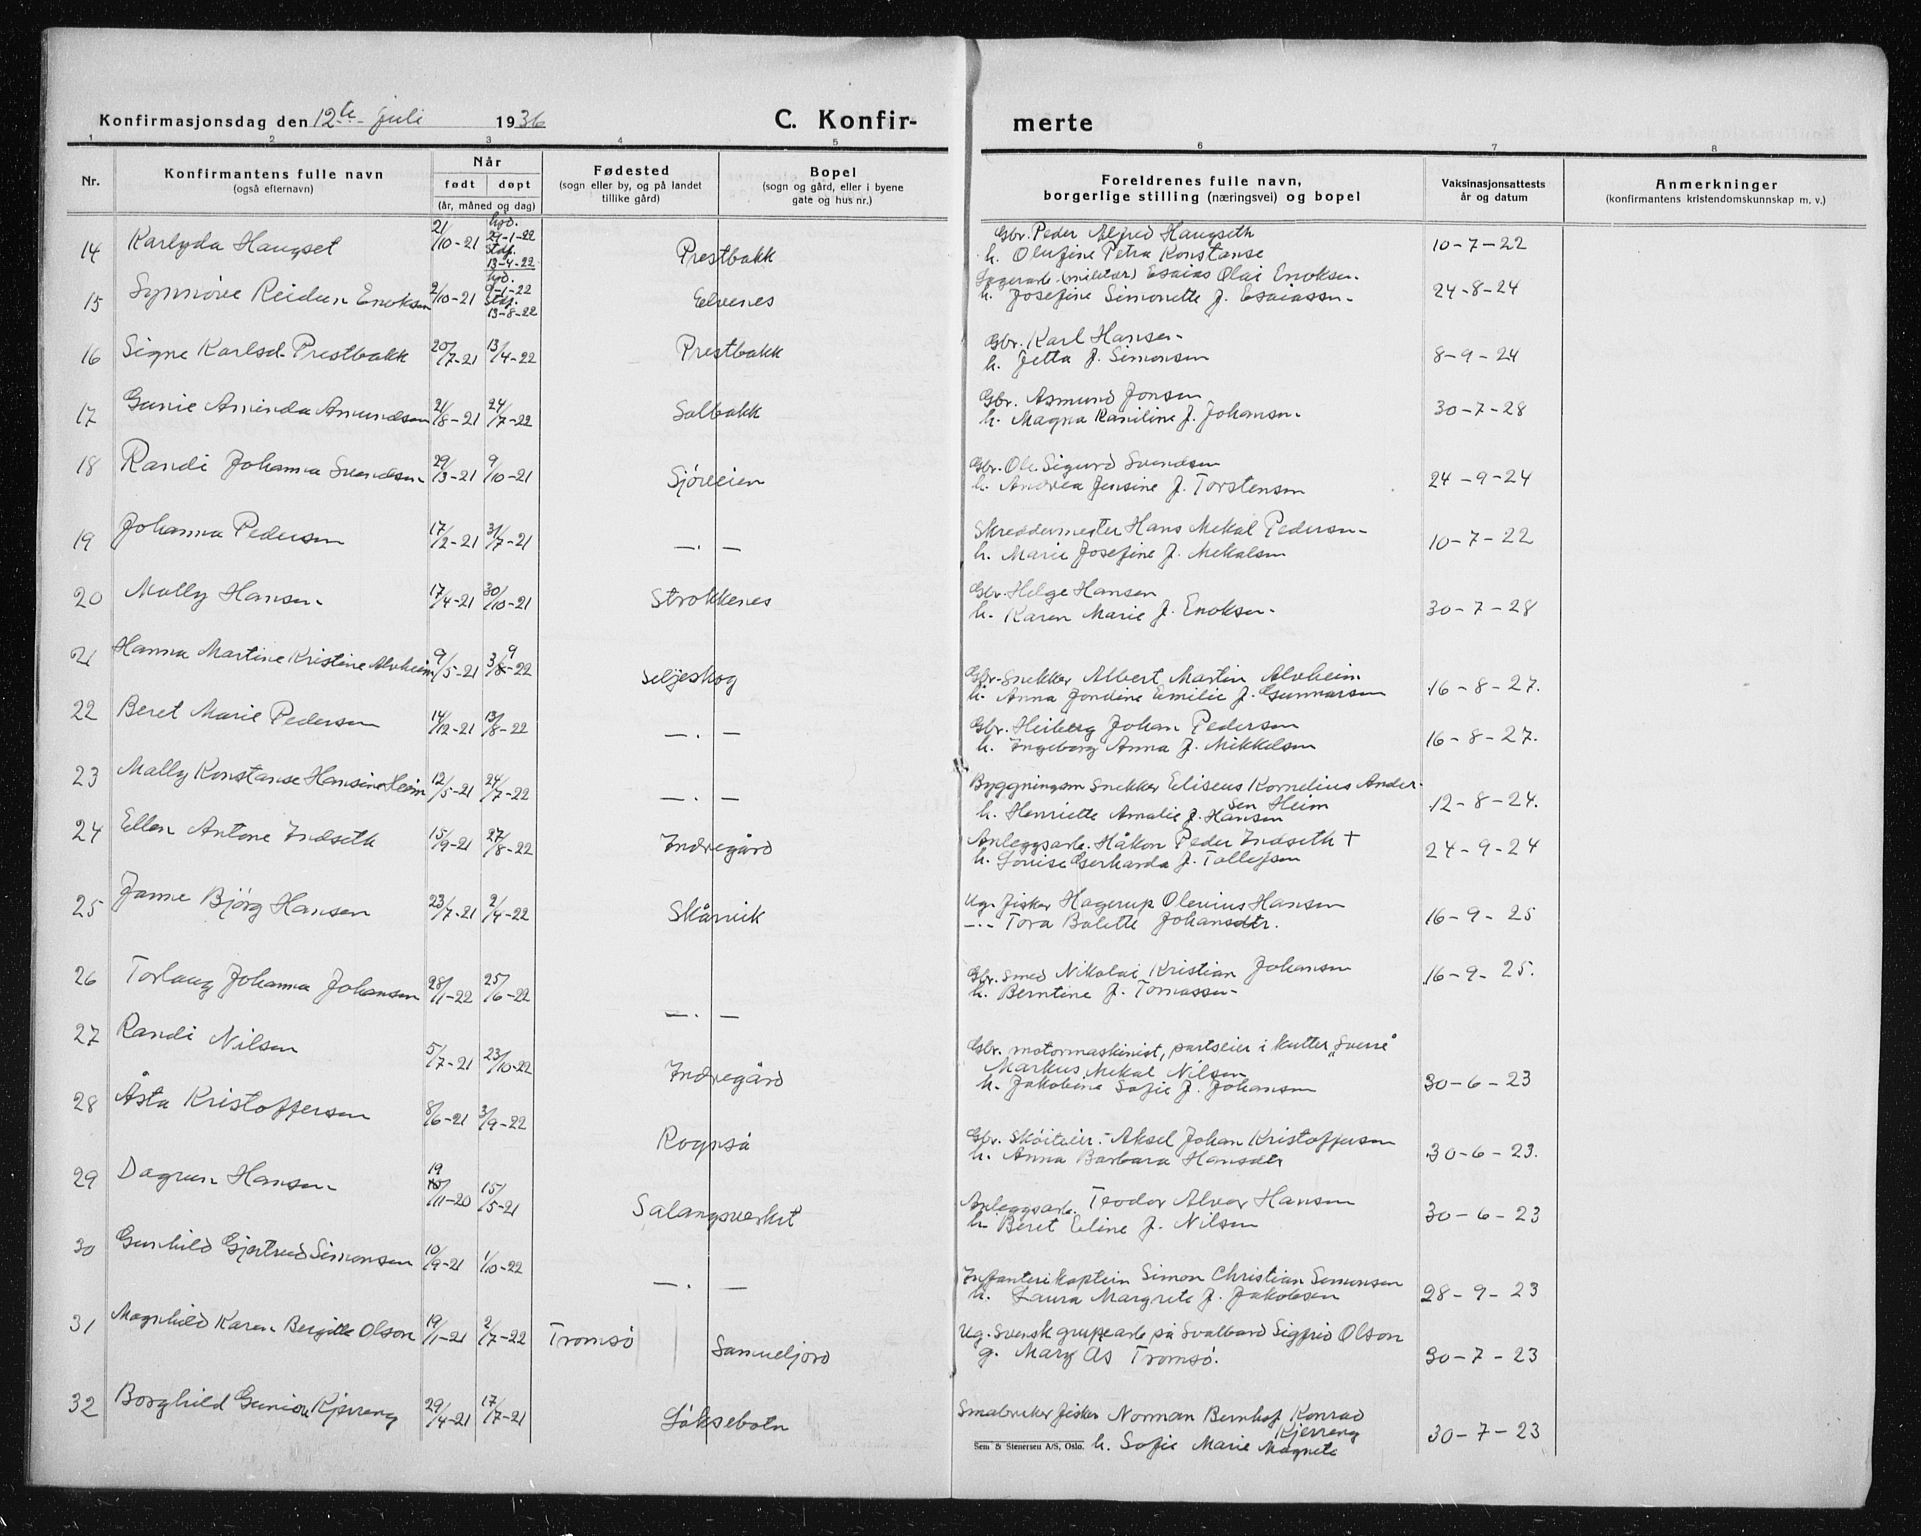 Konfirmasjonsdag den 12te juli 1936
C. Konfir- merte
1 2 3 4 5 6 7 8
Nr.
Konfirmantens fulle navn
(også efternavn)
Når
født døpt
(år, måned og dag)
Fødested
(sogn eller by, og på landet
tillike gård)
Bopel
(sogn og gård, eller i byene
gate og hus nr.)
Foreldrenes fulle navn,
borgerlige stilling (næringsvei) og bopel
Vaksinasjonsattests
år og datum
Anmerkninger
(konfirmantens kristendomskunnskap m. v.)
14 Karlyda Haugset 21/10-21 hjd. 29-1-22 stdf. 13-4-22 Prestbakk
Gbr. Peder Alfred Haugseth
h. Olufine Petra Konstanse 10-7-22
15 Synnøve Reidun Enoksen 2/10-21 hjd. 9-1-22 stdf. 13-8-22 Elvenes
Lagerarb. (militær) Esaias Olai Enoksen
h. Josefine Simonette J. Esaiassen 24-8-24
16 Signe Karlsd. Prestbakk 20/7-21 13/4-22 Prestbakk
Gbr. Karl Hansen
h. Jetta J. Simonsen 8-9-24
17 Gunie Aminda Amundsen 21/8-21 24/7-22 Salbakk
Gbr. Asmund Jonsen
h. Magna Kaniline J. Johansen 30-7-28
18 Randi Johanna Svendsen 29/3-21 9/10-21 Sjøveien
Gbr. Ole Sigurd Svendsen
h. Andrea Jensine J. Torstensen 24-9-24
19 Johanna Pedersen 17/2-21 31/7-21 —.—
Skreddermester Hans Mekal Pedersen
h. Marie Josefine J. Mekalsen 10-7-22
20 Molly Hansen 17/4-21 30/10-21 Strokkenes
Gbr. Helge Hansen
h. Karen Marie J. Enoksen 30-7-28
21 Hanna Martine Kristine Alvheim 9/5-21 3/9-22 Seljeskog
Gbr. Snekker Albert Martin Alvheim
h. Anna Jordine Emilie J. Gunnarsen 16-8-27.
22 Beret Marie Pedersen 14/12-21 13/8-22 —.—
Gbr. Heiberg Johan Pedersen
h. Ingeborg Anna J. Mikkelsen 16-8-27.
23 Mally Konstanse Hansine Heim 12/5-21 24/7-22 —.—
Byggningsm snekker Eliseus Kornelius Ander-
sen Heim
h. Henriette Amalie J. Hansen 12-8-24.
24 Ellen Antone Indseth 15/9-21 27/8-22 Indregård
Anleggsarb. Håkon Peder Indseth †
h. Louise Gerharda J. Tollefsen 24-9-24
25 Janne Bjørg Hansen 23/7-21 2/4-22 Skårvik
Ug. fisker Hagerup Olevius Hansen
—.— Tora Balette Johansdtr. 16-9-25
26 Torlaug Johanna Johansen 28/1-22 25/6-22 —.—
Gbr. smed Nikolai Kristian Johansen
h. Berntine J. Tomassen 16-9-25.
27 Randi Nilsen 5/7-21 23/10-22 Indregård
Gbr. motormaskinist, partseier i kutter "Sverre"
Markus Mekal Nilsen
h. Jakobine Sofie J. Johansen 30-6-23
28 Åsta Kristoffersen 8/6-21 3/9-22 Rognså
Gbr. Skøiteier. Aksel Johan Kristoffersen
h. Anna Barbara Hansdtr 30-6-23.
29 Dagrun Hansen 19/11-20 15/5-21 Salangsverket
Anleggsarb. Teodor Alvar Hansen
h. Beret Eline J. Nilsen 30-6-23
30 Gunhild Gjertrud Simonsen 10/9-21 1/10-22 —.—
Infanterikaptein Simon Christian Simonsen
h. Laura Margrete J. Jakobsen 28-9-23
31 Magnhild Karen Bergitte Olson 19/1-21 2/7-22 Tromsø Samueljord
Ug. Svensk grubearb på Svalbard Sigfrid Olson
g. Mary Ås Tromsø. 30-7-23
32 Borghild Gunion Kjerreng 29/4-21 17/7-21 Løksebotn
Småbruker fisker Norman Bernhof Konrad
Kjerreng
h. Sofie Marie Magnete 30-7-23
Sem & Stenersen A/S, Oslo.